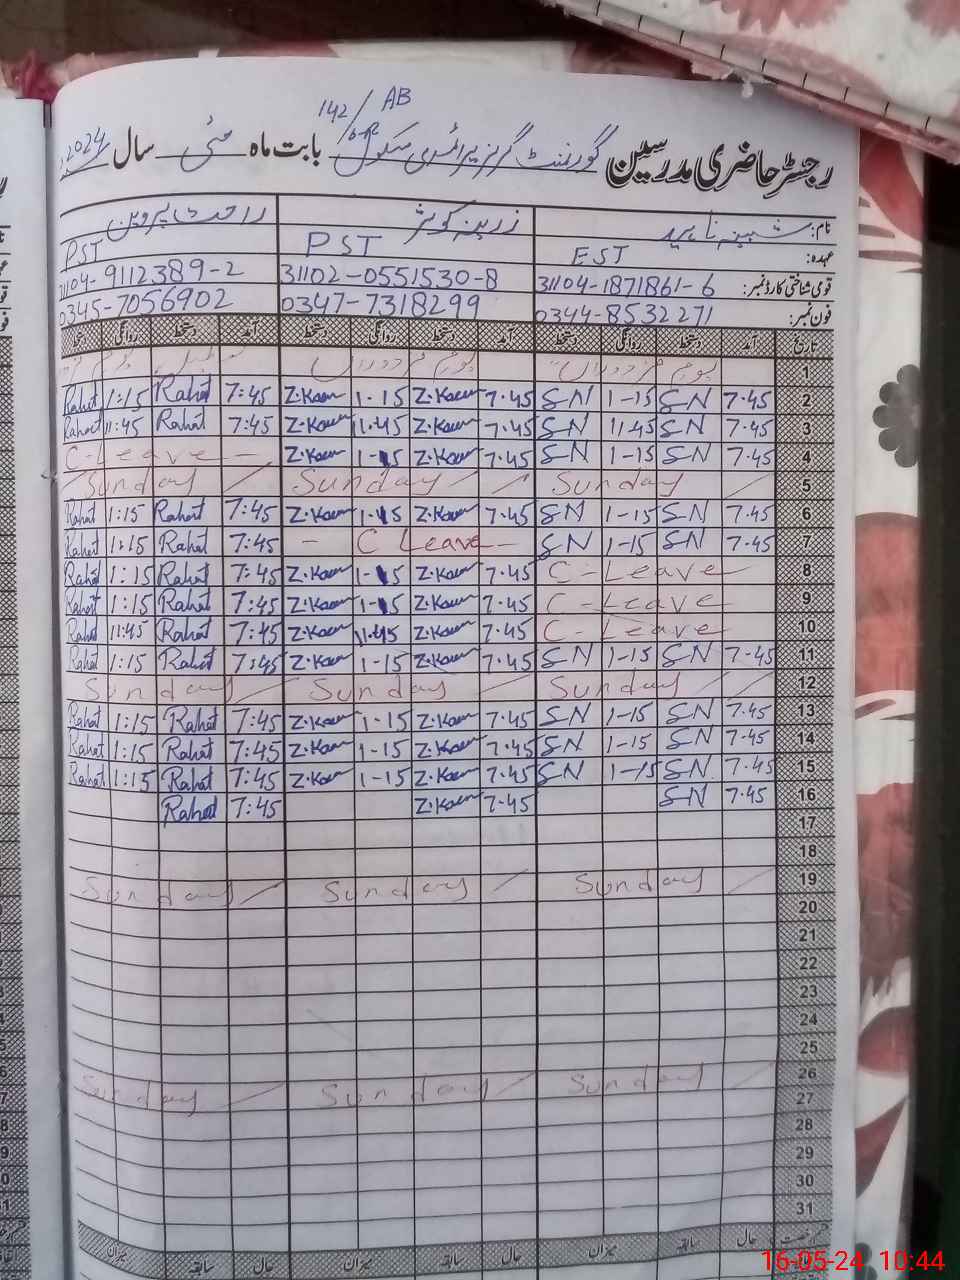 142/6-R AB
رجسٹر حاضری مدرسین گورنمنٹ گرلز پرائمری سکول بابت ماہ مئی سال 2024
نام: شبینہ ناہید زرینہ کوثر راحت پروین
عہدہ: EST PST PST
قومی شناختی کارڈ نمبر: 31104-1871861-6 31102-0551530-8 31104-9112389-2
فون نمبر: 0344-8532271 0347-7318299 0345-7056902
تاریخ آمد دستخط روانگی دستخط آمد دستخط روانگی دستخط آمد دستخط روانگی دستخط
1 یوم مزدوراں یوم مزدوراں
2 7.45 S-N 1-15 S-N 7.45 Z.Kour 1-15 Z.Kour 7:45 Rahat 1:15 Rahat
3 7.45 S-N 11.45 S-N 7.45 Z.Kour 11.45 Z.Kour 7:45 Rahat 11:45 Rahat
4 7.45 S-N 1-15 S-N 7.45 Z.Kour 1-15 Z.Kour C-Leave -
5 Sunday Sunday Sunday
6 7.45 S-N 1-15 S-N 7.45 Z.Kour 1-15 Z.Kour 7:45 Rahat 1:15 Rahat
7 7.45 S-N 1-15 S-N - C Leave - 7:45 Rahat 1:15 Rahat
8 C-Leave 7.45 Z.Kour 1-15 Z.Kour 7:45 Rahat 1:15 Rahat
9 C-Leave 7.45 Z.Kour 1-15 Z.Kour 7:45 Rahat 1:15 Rahat
10 C-Leave 7.45 Z.Kour 11.45 Z.Kour 7:45 Rahat 11:45 Rahat
11 7-45 S-N 1-15 S-N 7.45 Z.Kour 1-15 Z.Kour 7:45 Rahat 1:15 Rahat
12 Sunday Sunday Sunday
13 7.45 S-N 1-15 S-N 7.45 Z.Kour 1-15 Z.Kour 7:45 Rahat 1:15 Rahat
14 7.45 S-N 1-15 S-N 7.45 Z.Kour 1-15 Z.Kour 7:45 Rahat 1:15 Rahat
15 7.45 S-N 1-15 S-N 7.45 Z.Kour 1-15 Z.Kour 7:45 Rahat 1:15 Rahat
16 7.45 S-N 7.45 Z.Kour 7:45 Rahat
17
18
19 Sunday Sunday Sunday
20
21
22
23
24
25
26 Sunday Sunday Sunday
27
28
29
30
31
حال سابقہ میزان حال سابقہ میزان حال سابقہ میزان
16-05-24 10:44